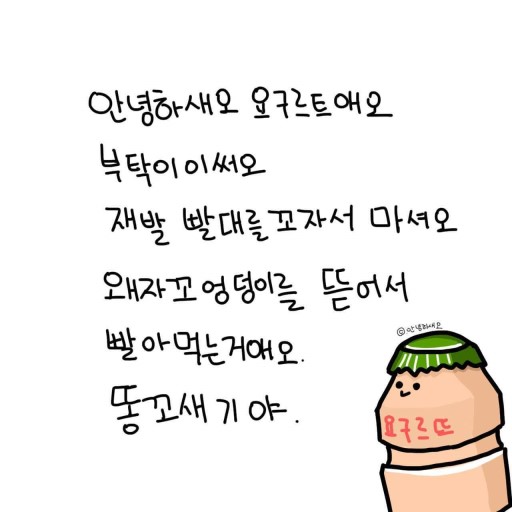 안녕하새오 요구르트애오
부탁이이써오
재발 빨대를꼬자서 마셔오
왜자꼬엉덩이를 뜯어서
빨아먹는거애오.
똥꼬새기야.
©안녕하새오
요구르뜨